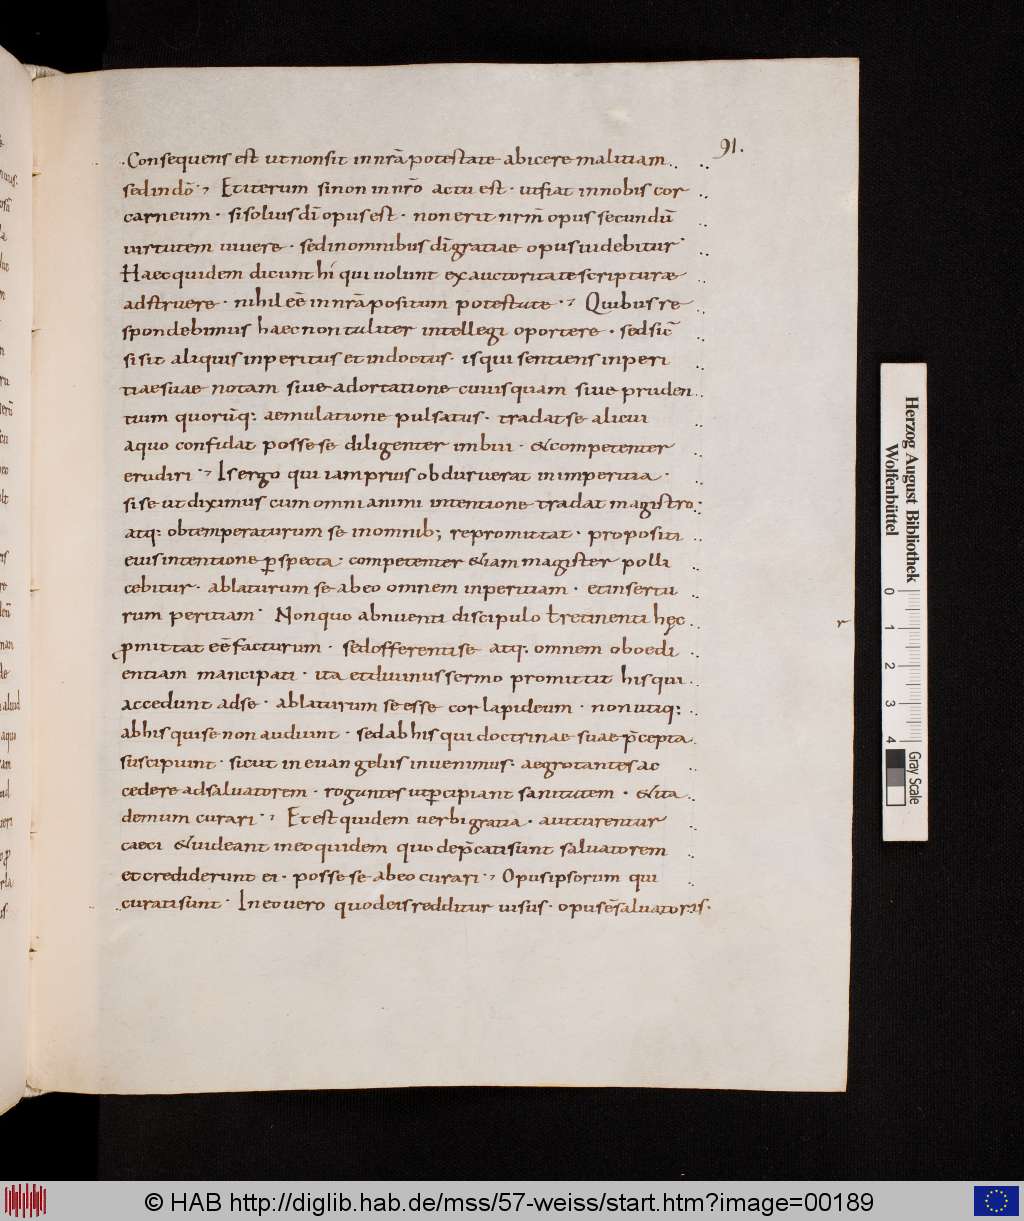 91.
Consequens est ut non sit in nr̄a potestate abicere malitiam.
sed in dō · Et iterum si non in nr̄o actu est · ut fiat in nobis cor
carneum · si solius dī opus est · non erit nr̄m opus secundū
virtutem vivere · sed in omnibus dī gratiae opus videbitur ·
Haec quidem dicunt hi qui volunt ex auctoritate scripturae
adstruere · nihil eē in nr̄a positum potestate · Quibus re
spondebimus haec non taliter intellegi oportere · sed sic̄
si sit aliquis inperitus et indoctus · is qui sentiens inperi
tiae suae notam sive adortatione cuiusquam sive pruden
tium quorūq: aemulatione pulsatus · tradat se alicui
a quo confidat posse se diligenter imbui · & competenter
erudiri · Is ergo qui iam prius obduruerat in imperitia ·
si se ut diximus cum omni animi intentione tradat magistro ·
atq: obtemperaturum se in omnib; repromittat · propositi
eius intentione ꝑspecta · competenter &iam magister polli
cebitur · ablaturum se ab eo omnem inperitiam · et inserturum
rum peritiam · Non quo abnuenti discipulo ł retinenti hęc
ꝓmittat eē facturum · sed offerenti se atq: omnem oboedi
entiam mancipati · ita et divinus sermo promittit his qui
accedunt ad se · ablaturum se esse cor lapideum · non utiq:
ab his qui se non audiunt · sed ab his qui doctrinae suae p̄cepta
suscipiunt · sicut in evangeliis invenimus · aegrotantes ac
cedere ad salvatorem · rogantes ut ꝑcipiant sanitatem · & ita
demum curari · Et est quidem verbi gratia · aut curentur
caeci & videant in eo quidem quo dep̄cati sunt salvatorem
et crediderunt ei · posse se ab eo curari · Opus ipsorum qui
curati sunt · In eo vero quod eis redditur visus · opus ē salvatoris ·
Herzog August Bibliothek
Wolfenbüttel
0 1 2 3 4
Gray Scale
© HAB http://diglib.hab.de/mss/57-weiss/start.htm?image=00189